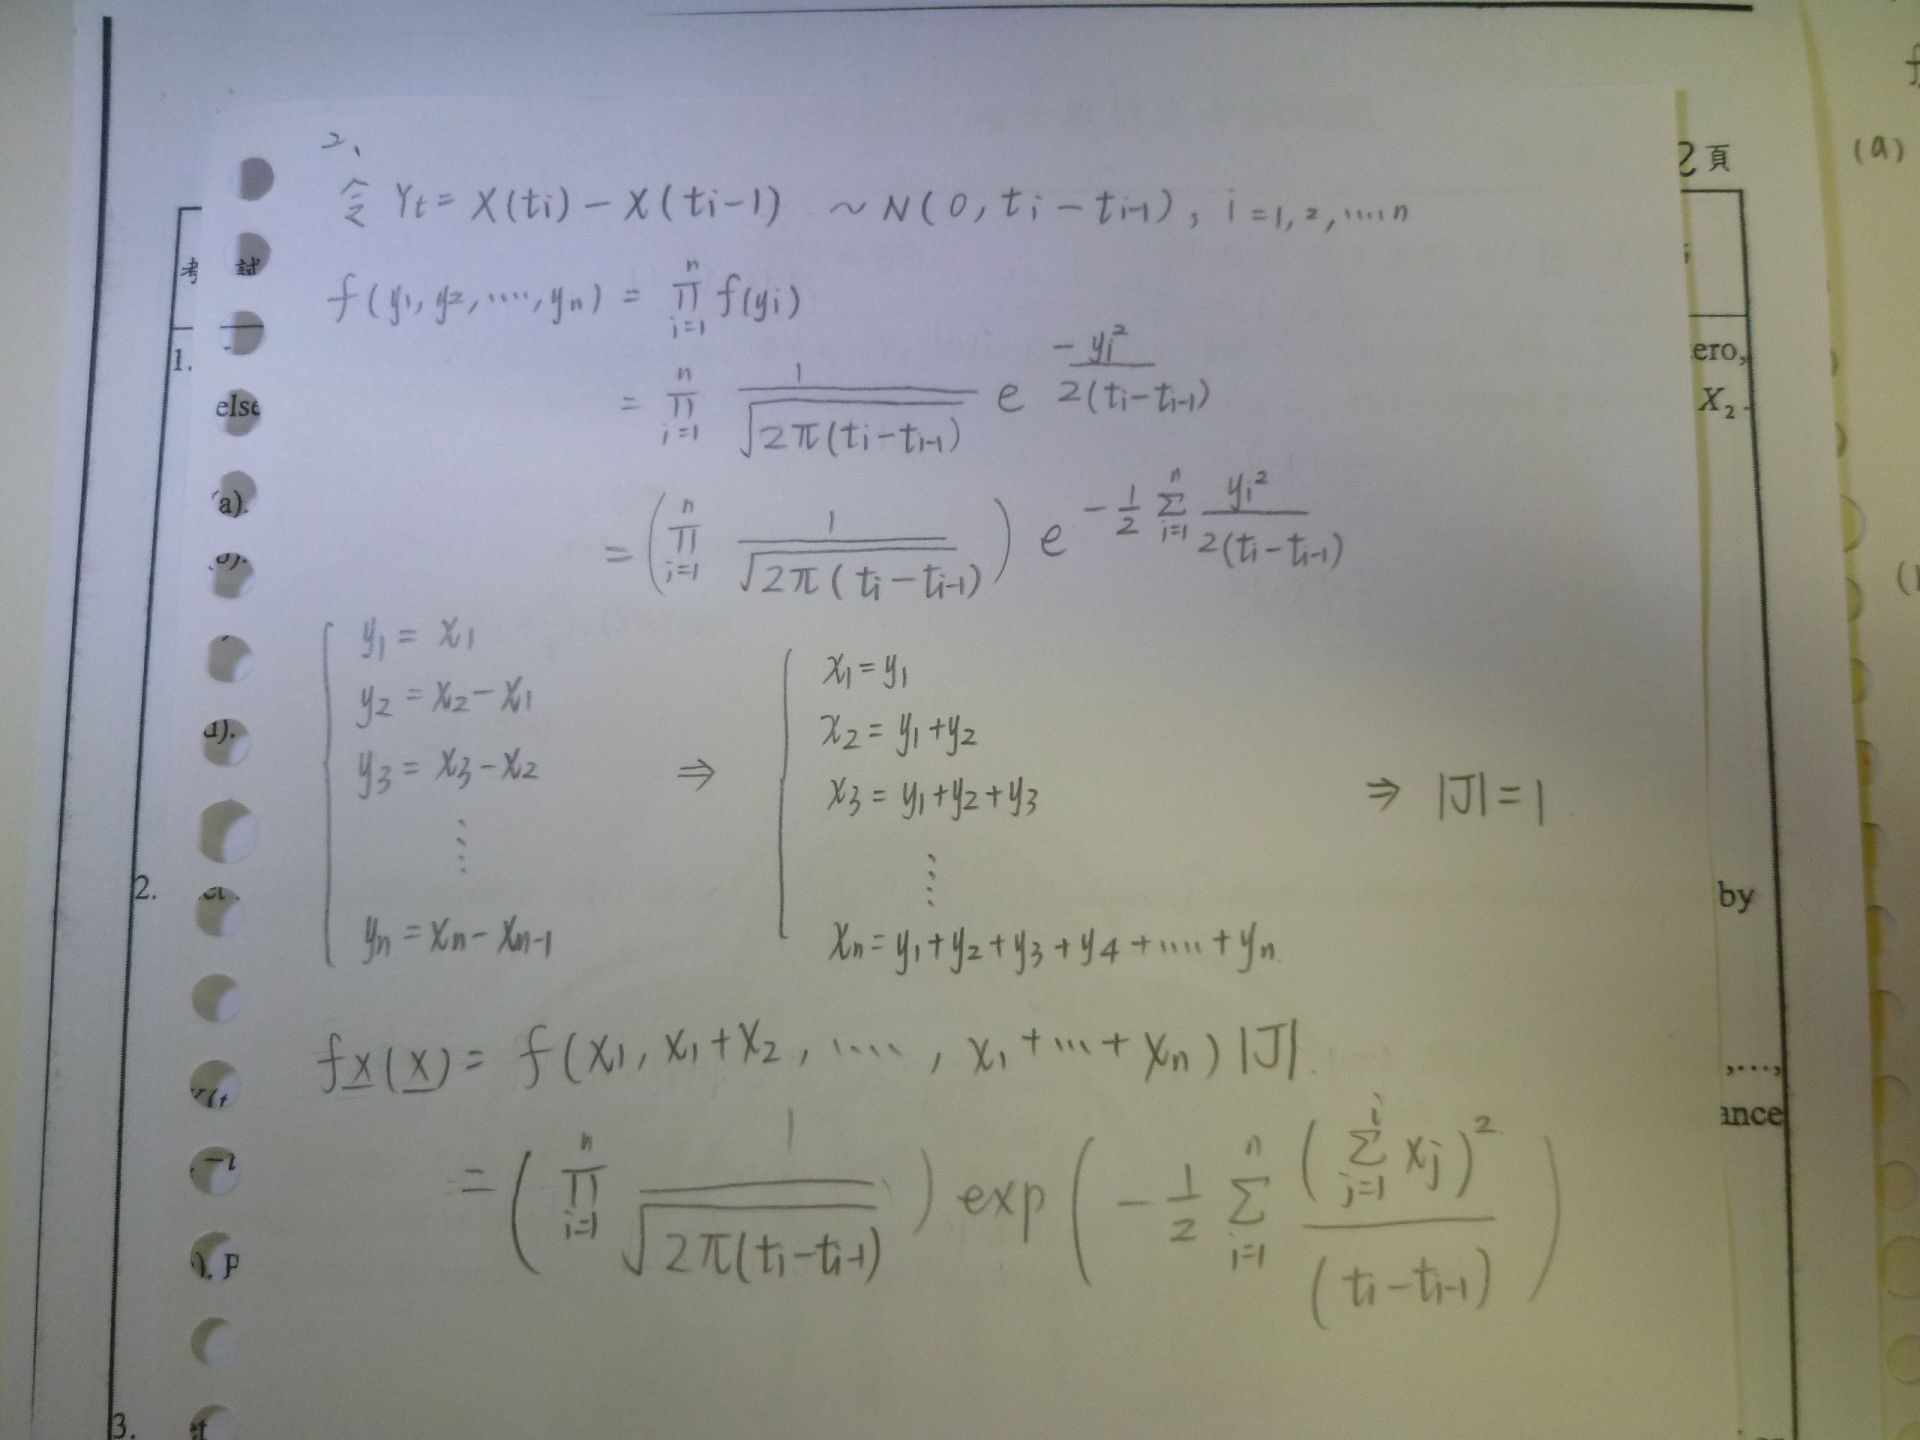 2、
令 Yt = X(ti) − X(ti−1) ~ N(0, ti − ti−1), i = 1, 2, ....n
f(y1, y2, ...., yn) = ∏_{i=1}^{n} f(yi)
= ∏_{i=1}^{n} 1/√(2π(ti − ti−1)) e^{−yi²/(2(ti − ti−1))}
= (∏_{i=1}^{n} 1/√(2π(ti − ti−1))) e^{−1/2 ∑_{i=1}^{n} yi²/(2(ti − ti−1))}
y1 = x1
y2 = x2 − x1
y3 = x3 − x2
⋮
yn = xn − xn−1
⇒
x1 = y1
x2 = y1 + y2
x3 = y1 + y2 + y3
⋮
xn = y1 + y2 + y3 + y4 + .... + yn
⇒ |J| = 1
fX(X) = f(x1, x1 + x2, ...., x1 + ... + xn) |J|
= (∏_{i=1}^{n} 1/√(2π(ti − ti−1))) exp(−1/2 ∑_{i=1}^{n} (∑_{j=1}^{i} xj)²/(ti − ti−1))
2頁
考 試
1.
ero,
else
X2 -
(a).
d).
2.
by
,...,
ance
). P
3.
(a)